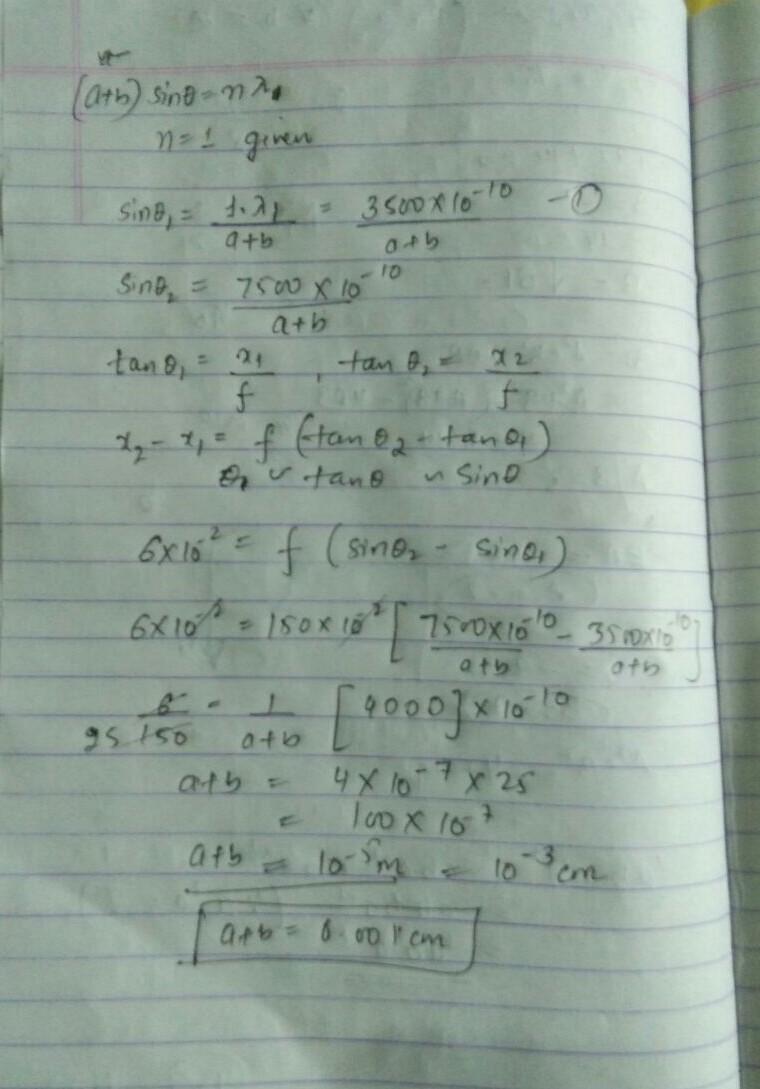 (a+b) sinθ = nλ
n = 1 given
sinθ₁ = 1·λ₁/a+b = 3500×10⁻¹⁰/a+b – ①
sinθ₂ = 7500×10⁻¹⁰/a+b
tanθ₁ = x₁/f , tanθ₂ = x₂/f
x₂ - x₁ = f (tanθ₂ - tanθ₁)
θ ~ tanθ ~ sinθ
6×10⁻² = f (sinθ₂ - sinθ₁)
6×10⁻² = 150×10⁻² [7500×10⁻¹⁰/a+b - 3500×10⁻¹⁰/a+b]
6/150 25 = 1/a+b [4000]×10⁻¹⁰
a+b = 4×10⁻⁷×25
= 100×10⁻⁷
a+b = 10⁻⁵m = 10⁻³cm
a+b = 0.001cm